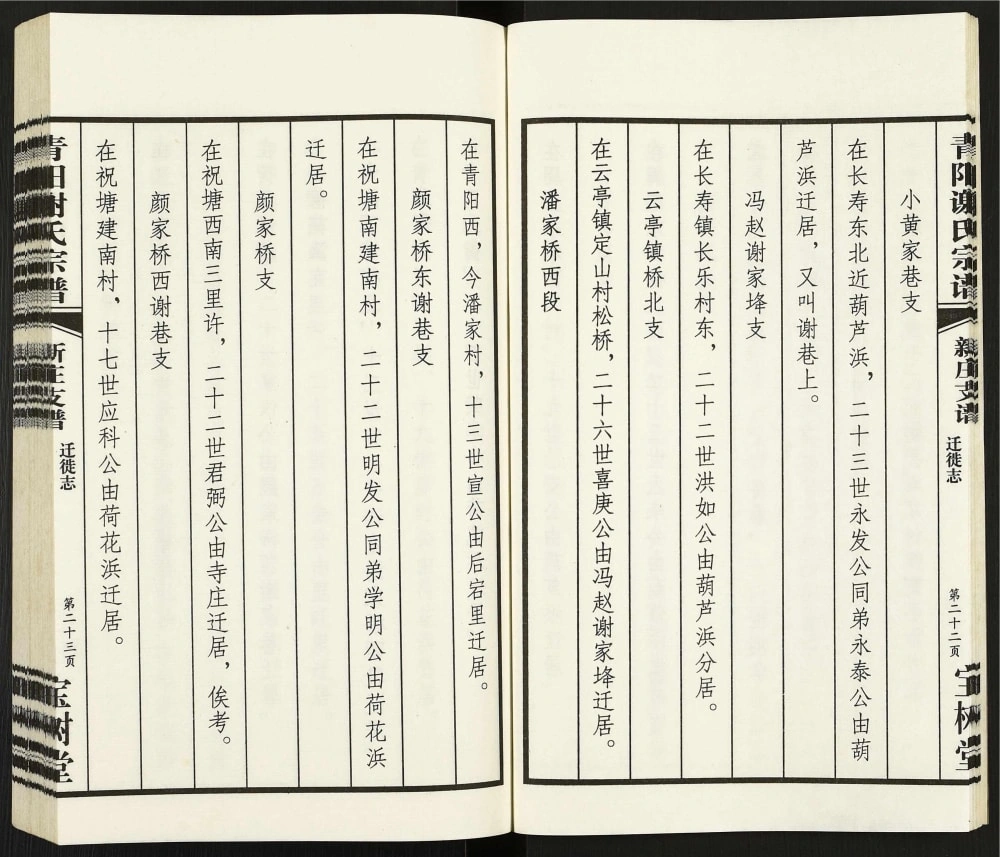 青阳谢氏宗谱
新庄支谱
迁徙志
第二十二页
宝树堂
小黄家巷支
在长寿东北近葫芦浜，二十三世永发公同弟永泰公由葫
芦浜迁居，又叫谢巷上。
冯赵谢家垟支
在长寿镇长乐村东，二十二世洪如公由葫芦浜分居。
云亭镇桥北支
在云亭镇定山村松桥，二十六世喜庚公由冯赵谢家垟迁居。
潘家桥西段
在青阳西，今潘家村，十三世宣公由后宕里迁居。
颜家桥东谢巷支
在祝塘南建南村，二十二世明发公同弟学明公由荷花浜
迁居。
颜家桥支
在祝塘西南三里许，二十二世君弼公由寺庄迁居，俟考。
颜家桥西谢巷支
在祝塘建南村，十七世应科公由荷花浜迁居。
青阳谢氏宗谱
新庄支谱
迁徙志
第二十三页
宝树堂